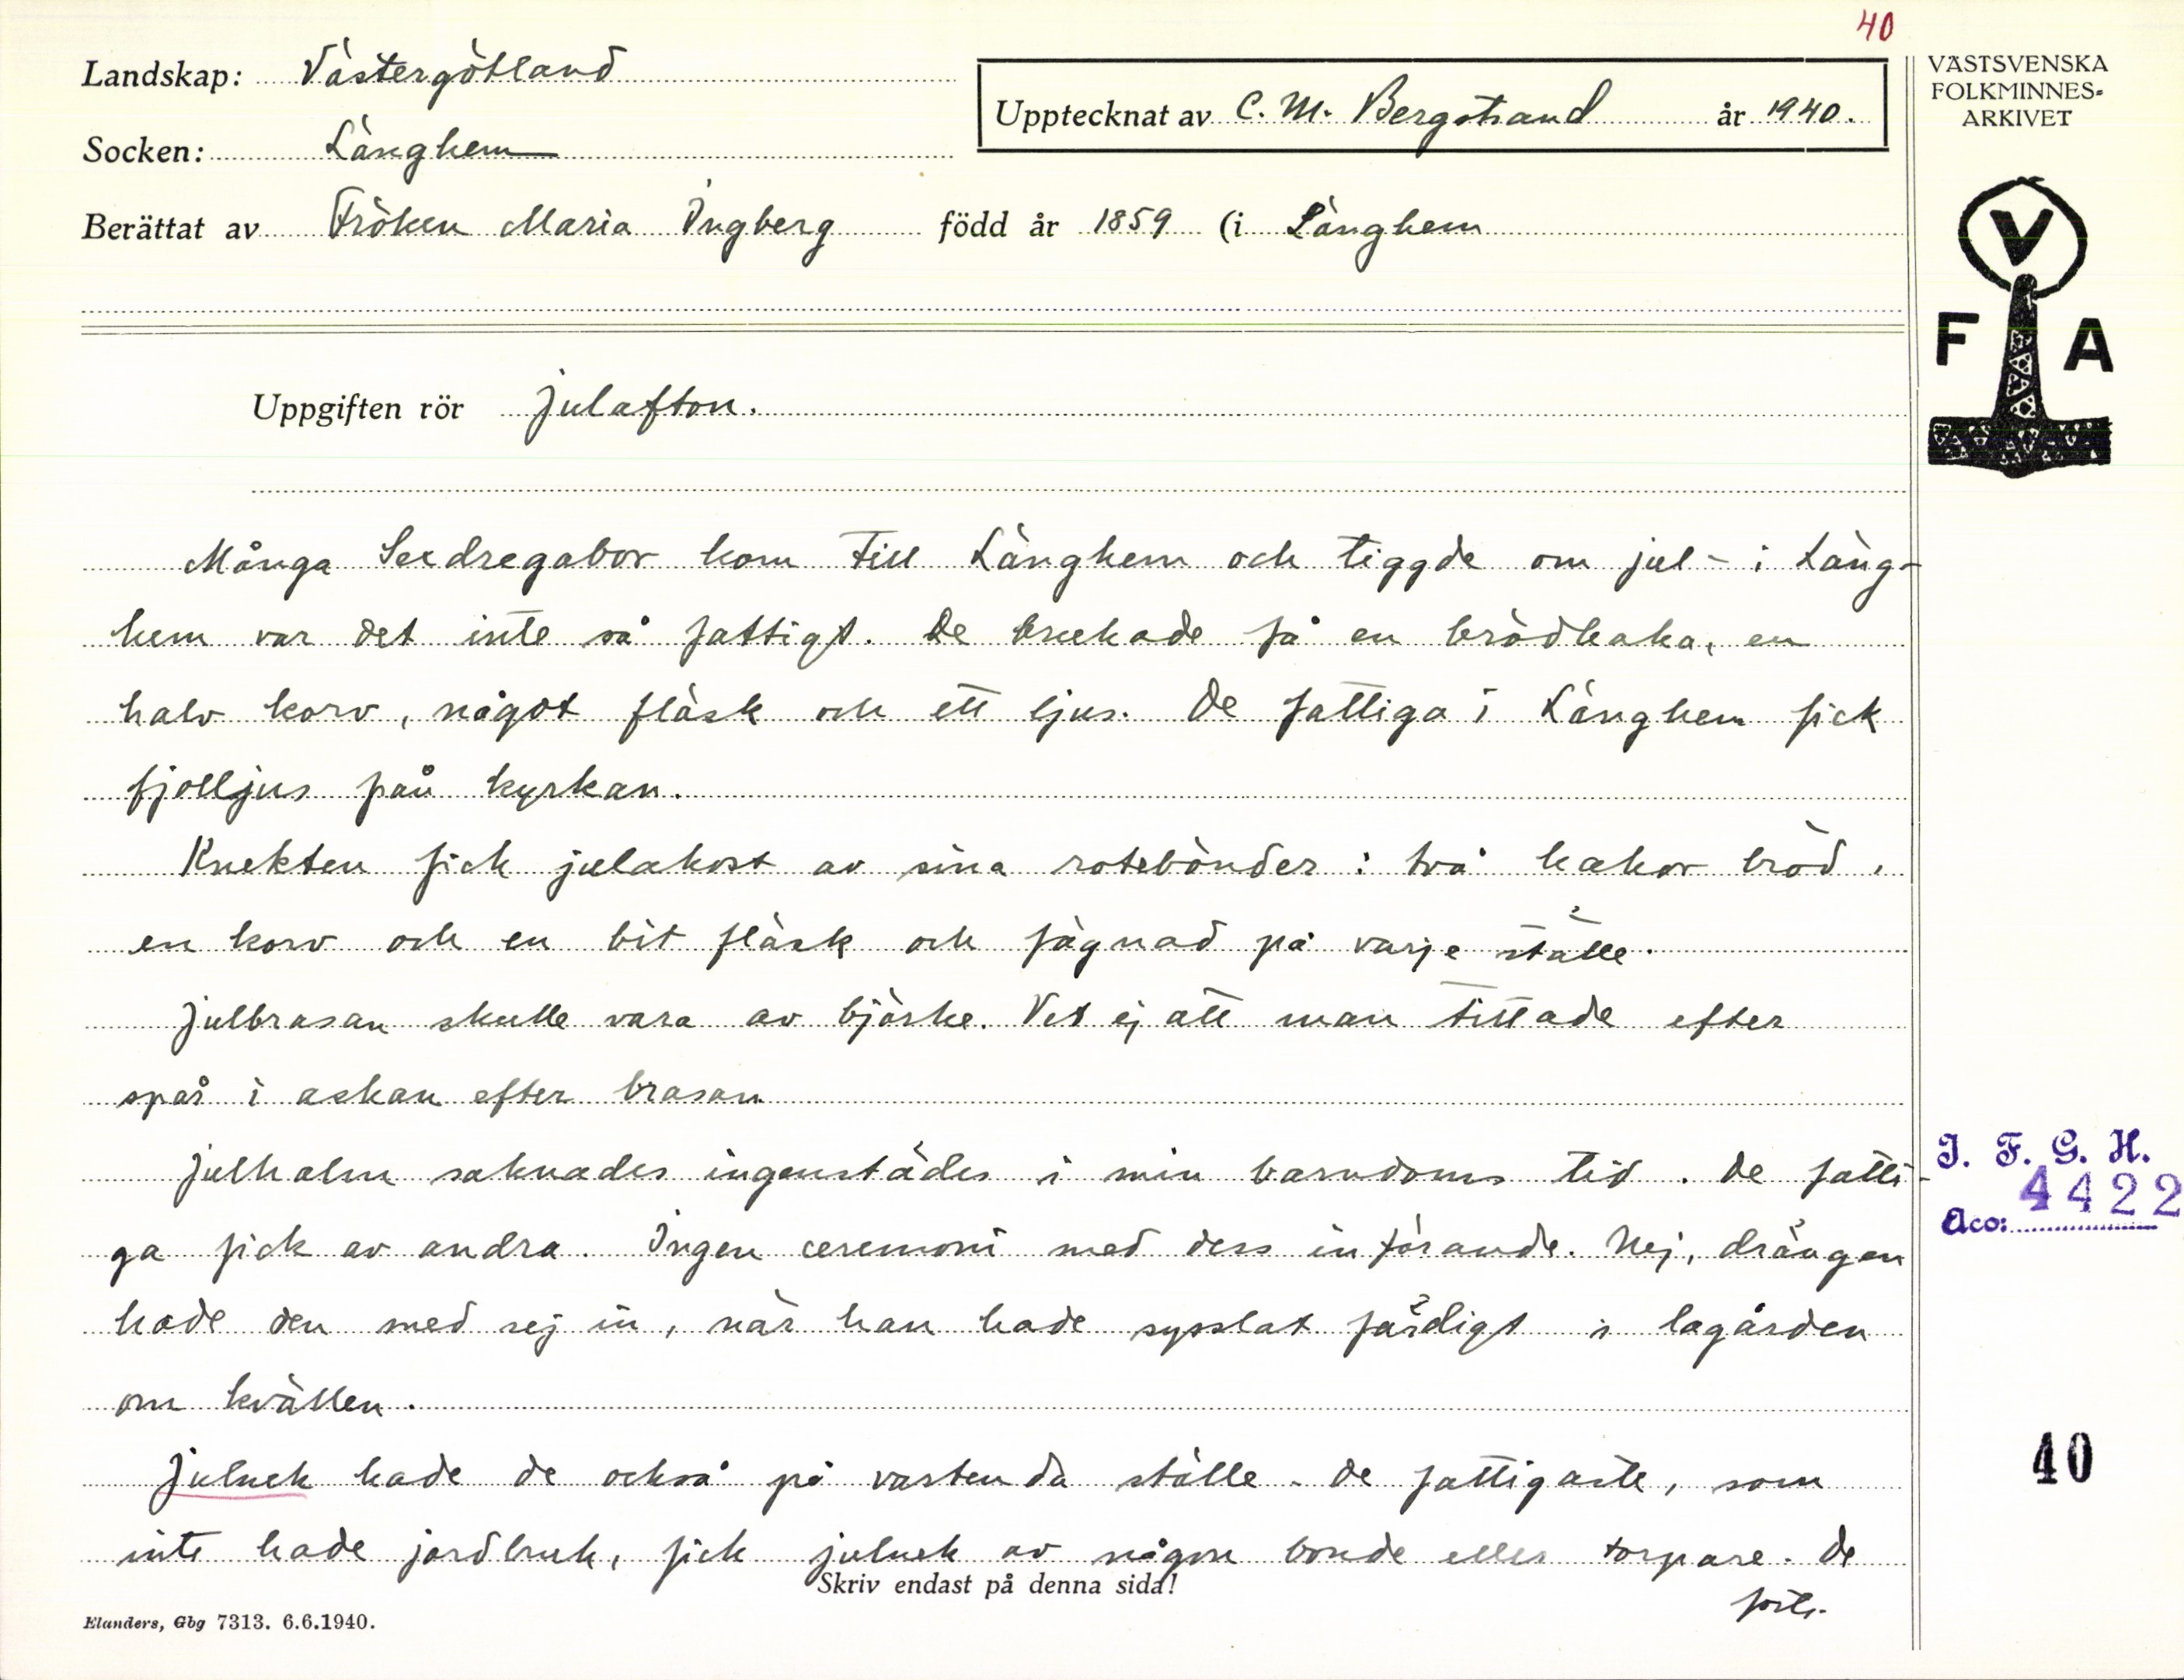 40
Landskap: Västergötland
Upptecknat av C. M. Bergstrand år 1940.
VÄSTSVENSKA
FOLKMINNES-
ARKIVET
Socken: Länghem
Berättat av Fröken Maria Ingberg född år 1859 (i Länghem
V
F A
Uppgiften rör Julafton.
Många Sexdregabor kom till Länghem och tiggde om jul - i Läng-
hem var det inte så fattigt. De brukade få en brödkaka, en
halv korv, något fläsk och ett ljus. De fattiga i Länghem fick
fjolljus på kyrkan.
Knekten fick julakost av sina rotebönder: två kakor bröd,
en korv och en bit fläsk och fägnad på varje ställe.
Julbrasan skulle vara av björke. Vet ej att man tittade efter
spår i askan efter brasan
Julhalm saknades ingenstädes i min barndoms tid. De fatti-
ga fick av andra. Ingen ceremoni med dess införande. Nej, drängen
hade den med sej in, när han hade sysslat färdigt i lagården
om kvällen.
Julnek hade de också på vartenda ställe - de fattigaste, som
inte hade jordbruk, fick julnek av någon bonde eller torpare. De
forts.
Skriv endast på denna sida!
Elanders, Gbg 7313. 6.6.1940.
I. F. G. H.
Acc: 4422
40